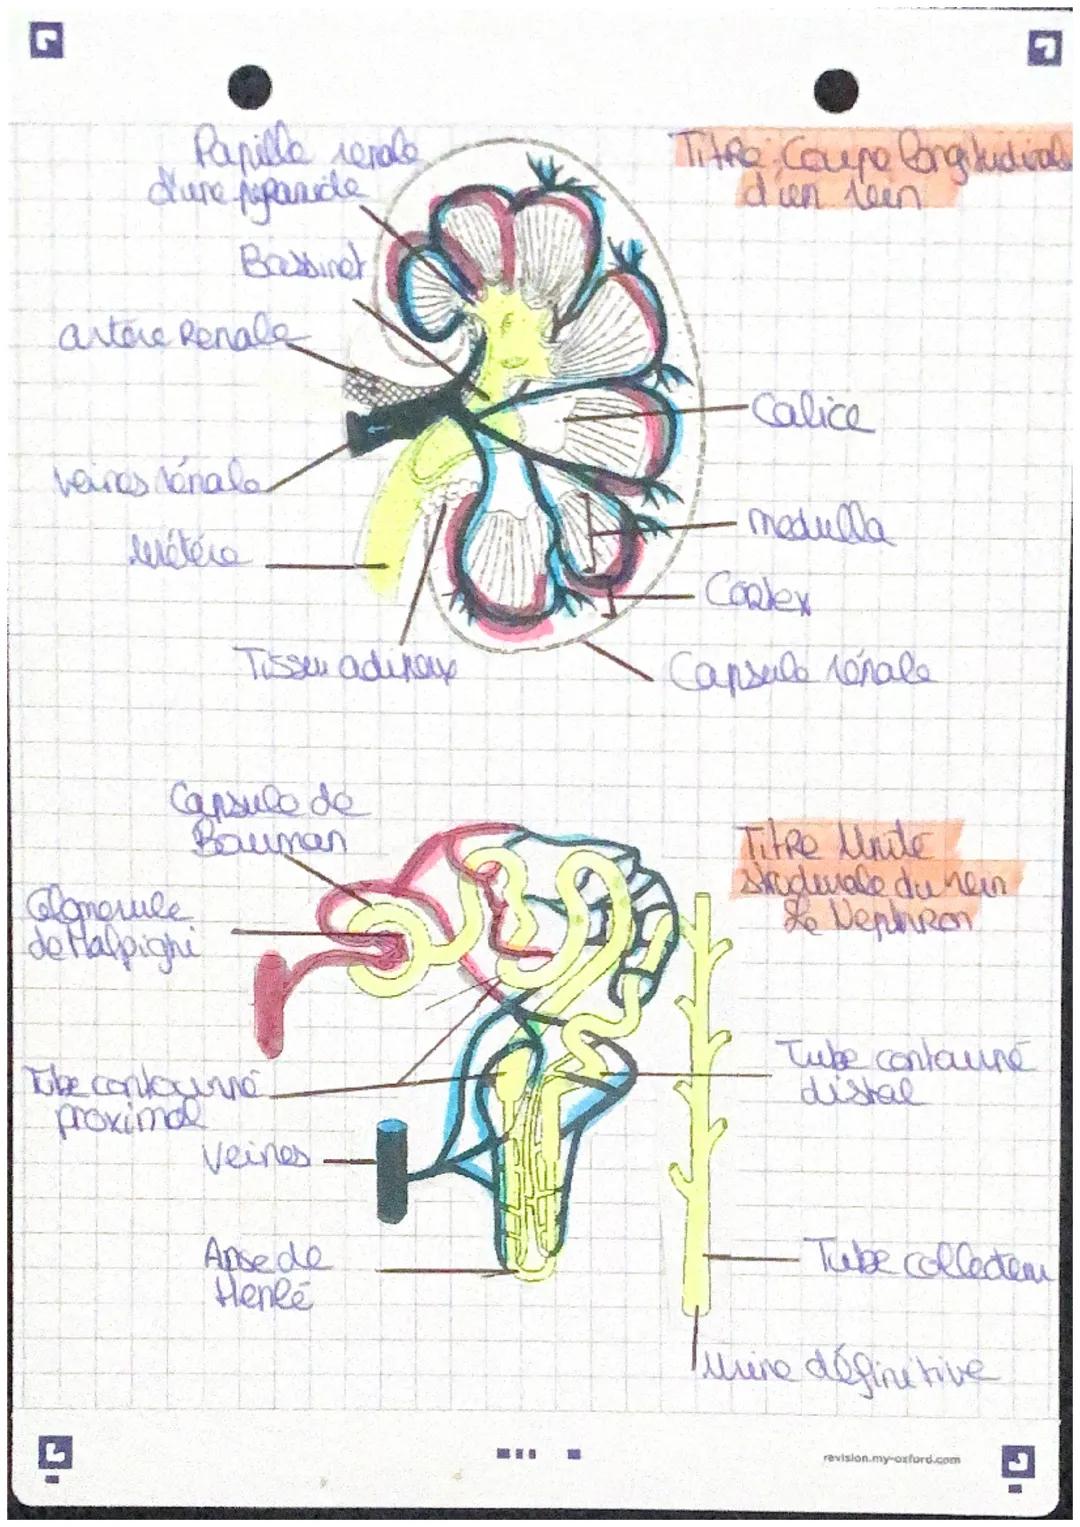 Titre: Coupe longitudinale
d'un rein
Papille renale
d'une pyramide
Bassinet
artère Renale
veines rénale
urétère
Tissu adipeux
Calice
medulla
Cortex
Capsule rénale
Titre Unite
structurale du rein
Le Nephron
Capsule de
Bauman
Glomerule
de Malpighi
Tube contourné
proximal
veines
Anse de
Henlé
Tube contourné
distal
Tube collecteur
Urine définitive
revision.my-oxford.com